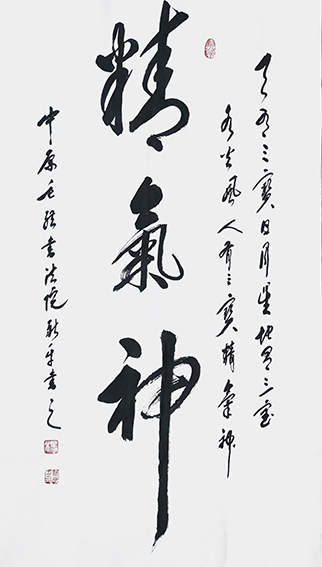 天有三寳日月星地有三寶
水火風人有三寳精氣神
精氣神
中原毛體書法院新年書之